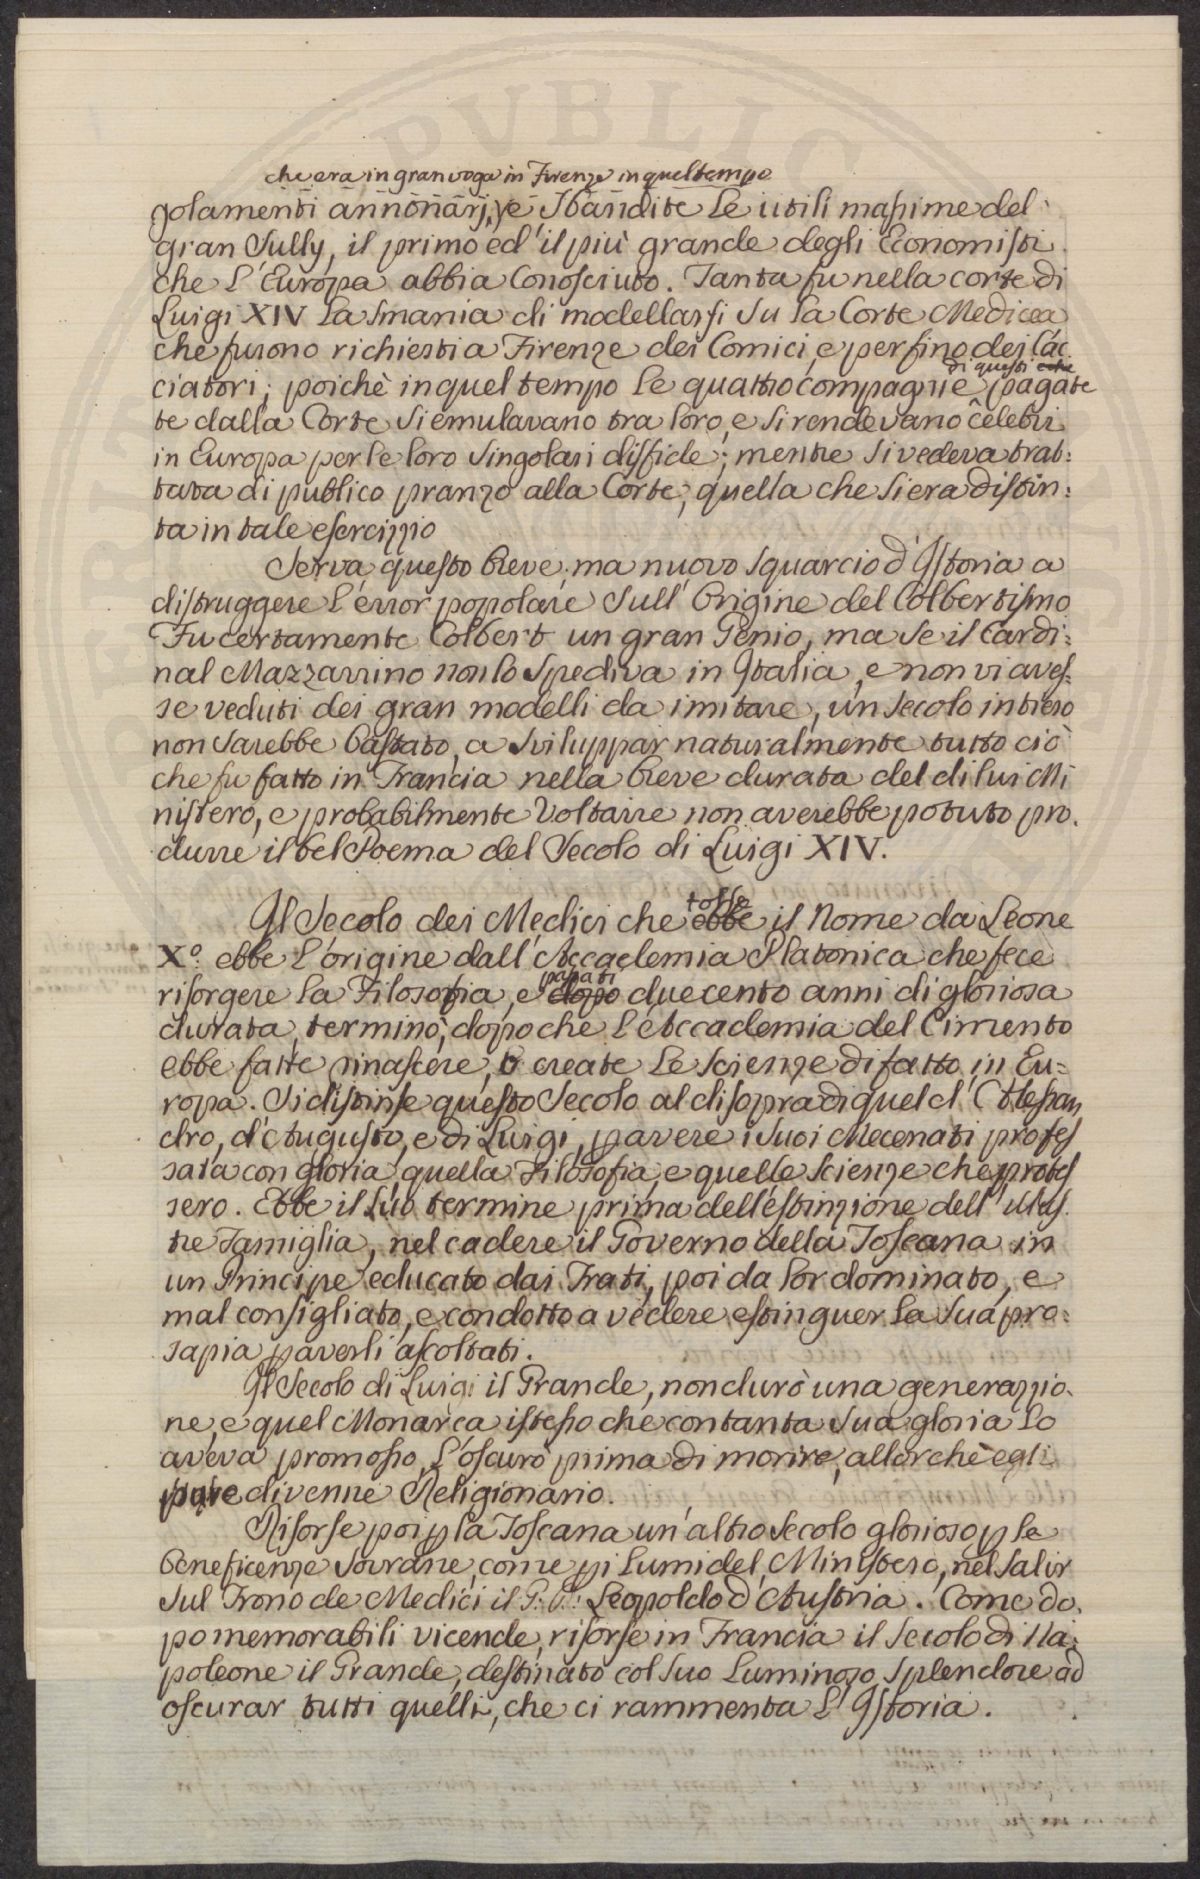 che era in gran voga in Firenze in quel tempo
golamenti annonarj, e sbandite le utili massime del
gran Sully, il primo ed il più grande degli Economisti
che l'Europa abbia conosciuto. Tanta fu nella corte di
Luigi XIV la smania di modellarsi su la Corte Medicea
che furono richiesti a Firenze dei Comici, e perfino dei Cac
di questi
ciatori; poichè in quel tempo le quattro compagnie pagate
te dalla Corte si emulavano tra loro, e si rendevano celebri
in Europa per le loro singolari disfide; mentre si vedeva trat:
tata di publico pranzo alla Corte, quella che si era distin:
ta in tale esercizzio
Serva questo breve, ma nuovo squarcio d'Istoria a
distruggere l'error popolare sull'Origine del Colbertismo
Fu certamente Colbert un gran Genio, ma se il Cardi:
nal Mazzarrino non lo spediva in Italia, e non vi aves:
se veduti dei gran modelli da imitare, un secolo intiero
non sarebbe bastato, a sviluppar naturalmente tutto ciò
che fu fatto in Francia nella breve durata del di lui Mi
nistero, e probabilmente Voltaire non averebbe potuto pro.
durre il bel Poema del Secolo di Luigi XIV.
tolse
Il Secolo dei Medici che ebbe il Nome da Leone
X.º ebbe l'origine dall'Accademia Platonica che fece
passati
risorgere la Filosofia, e dopo duecento anni di gloriosa
durata, terminò, dopo che l'Accademia del Cimento
ebbe fatte rinascere, e create le scienze di fatto in Eu=
ropa. Si distinse questo Secolo al disopra di quel d'Alessan
dro, d'Augusto, e di Luigi, p avere i suoi Mecenati profes
sata con gloria quella Filosofia, e quelle scienze che protes
sero. Ebbe il suo termine prima dell'estinzione dell'Illus.
tre Famiglia, nel cadere il Governo della Toscana in
un Principe educato dai Frati, poi da lor dominato, e
mal consigliato, e condotto a vedere estinguer la sua pro:
sapia p averli ascoltati.
Il Secolo di Luigi il Grande, non durò una generazzio.
ne, e quel Monarca istesso che con tanta sua gloria lo
aveva promosso, l'oscurò prima di morire, allorchè egli
pure divenne Religionario.
Risorse poi p la Toscana un'altro secolo glorioso p le
beneficenze Sovrane, come pi lumi del Ministero, nel salir
sul Trono de Medici il G: D: Leopoldo d'Austria. Come do.
po memorabili vicende, risorse in Francia il secolo di Na:
poleone il Grande, destinato col suo luminoso splendore ad
oscurar tutti quelli, che ci rammenta l'Istoria.